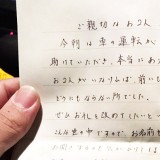 ご親切なお2人
今朝は車の運転が
助けていただき、本当にあ
お2人がいなければ、前い
どうにもならない所でした。
ぜひお礼を改めてしたいと
こんな世の中ですので、お名前も